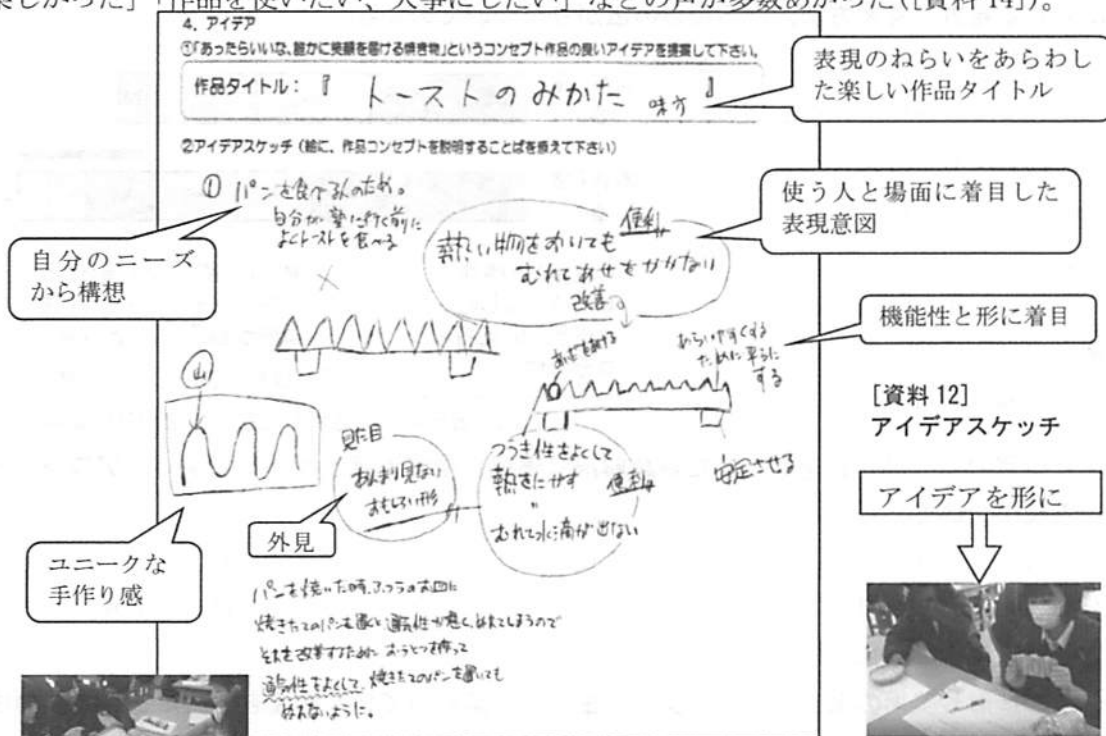 楽しかった」「作品を使いたい、大事にしたい」などの声が多数あがった([資料 14])。
4. アイデア
①「あったらいいな、誰かに笑顔を届ける焼き物」というコンセプト作品の良いアイデアを提案して下さい。
作品タイトル：『 トーストのみかた 味方 』
表現のねらいをあらわし
た楽しい作品タイトル
②アイデアスケッチ（絵に、作品コンセプトを説明することばを添えて下さい）
① パンを食べる人のため。
自分が塾に行く前に
よくトーストを食べる
自分のニーズ
から構想
便利
熱い物をおいても
むれてあせをかかない
改善
使う人と場面に着目した
表現意図
機能性と形に着目
あなをあける
あらいやすくする
ために平らに
する
山
見た目
あんまり見ない
おもしろい形
外見
つうき性をよくして
熱をにがす 便利
むれて水滴が出ない
安定させる
ユニークな
手作り感
[資料 12]
アイデアスケッチ
アイデアを形に
パンを焼いた時、ふつうのお皿に
焼きたてのパンを置くと通気性が悪く、ぬれてしまうので
それを改善するために おうとつを作って
通気性をよくして、焼きたてのパンを置いても
ぬれないように。